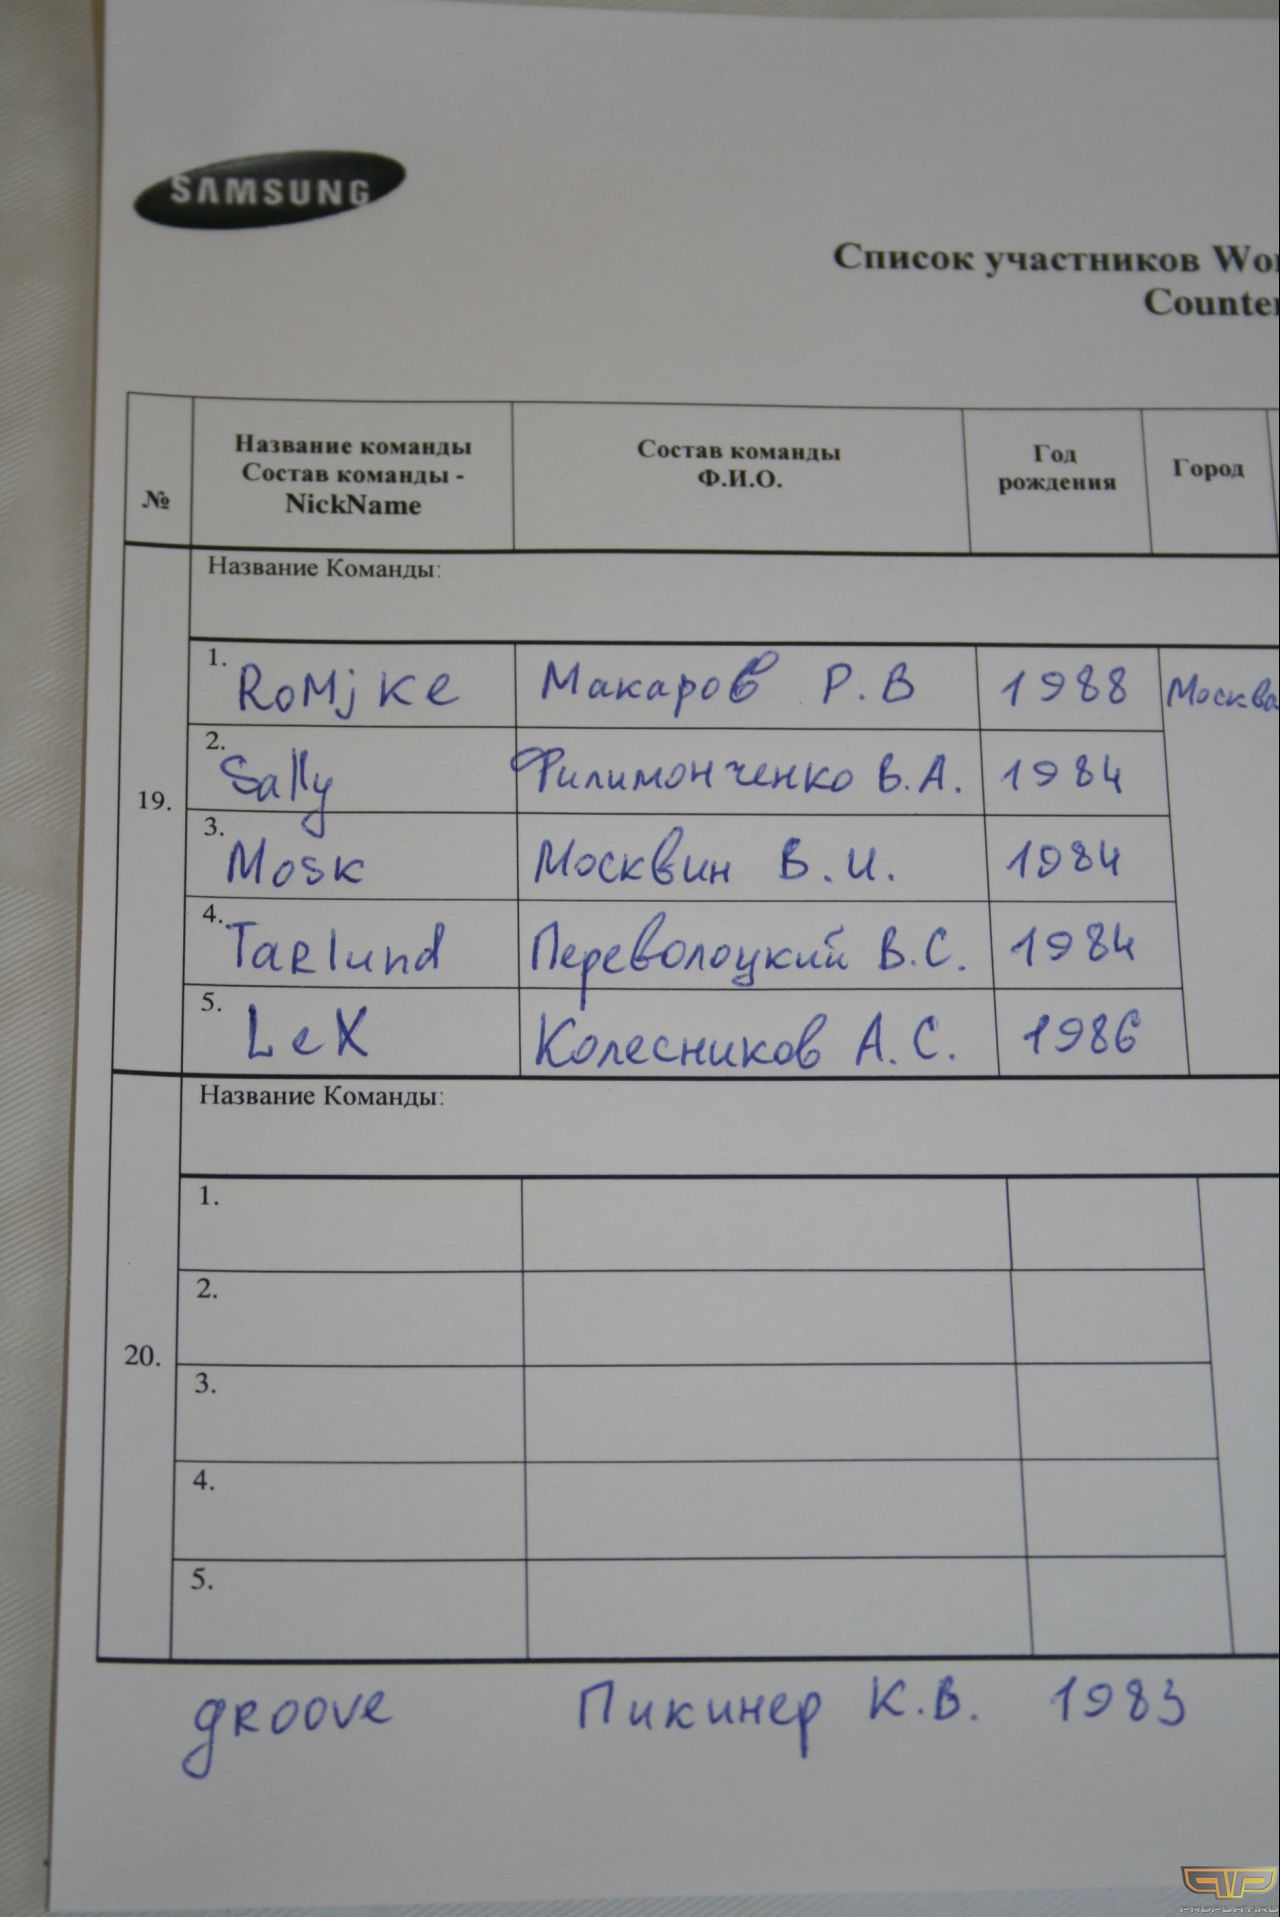 SAMSUNG
Список участников Wor
Counter
№
Название команды
Состав команды -
NickName
Состав команды
Ф.И.О.
Год
рождения
Город
19.
Название Команды:
1. RoMjke Макаров Р.В 1988 Москва
2. Sally Филимонченко В.А. 1984
3. Mosk Москвин В.И. 1984
4. Tarlund Переволоцкий В.С. 1984
5. LeX Колесников А.С. 1986
20.
Название Команды:
1.
2.
3.
4.
5.
groove Пикинер К.В. 1983
PROPLAY.RU